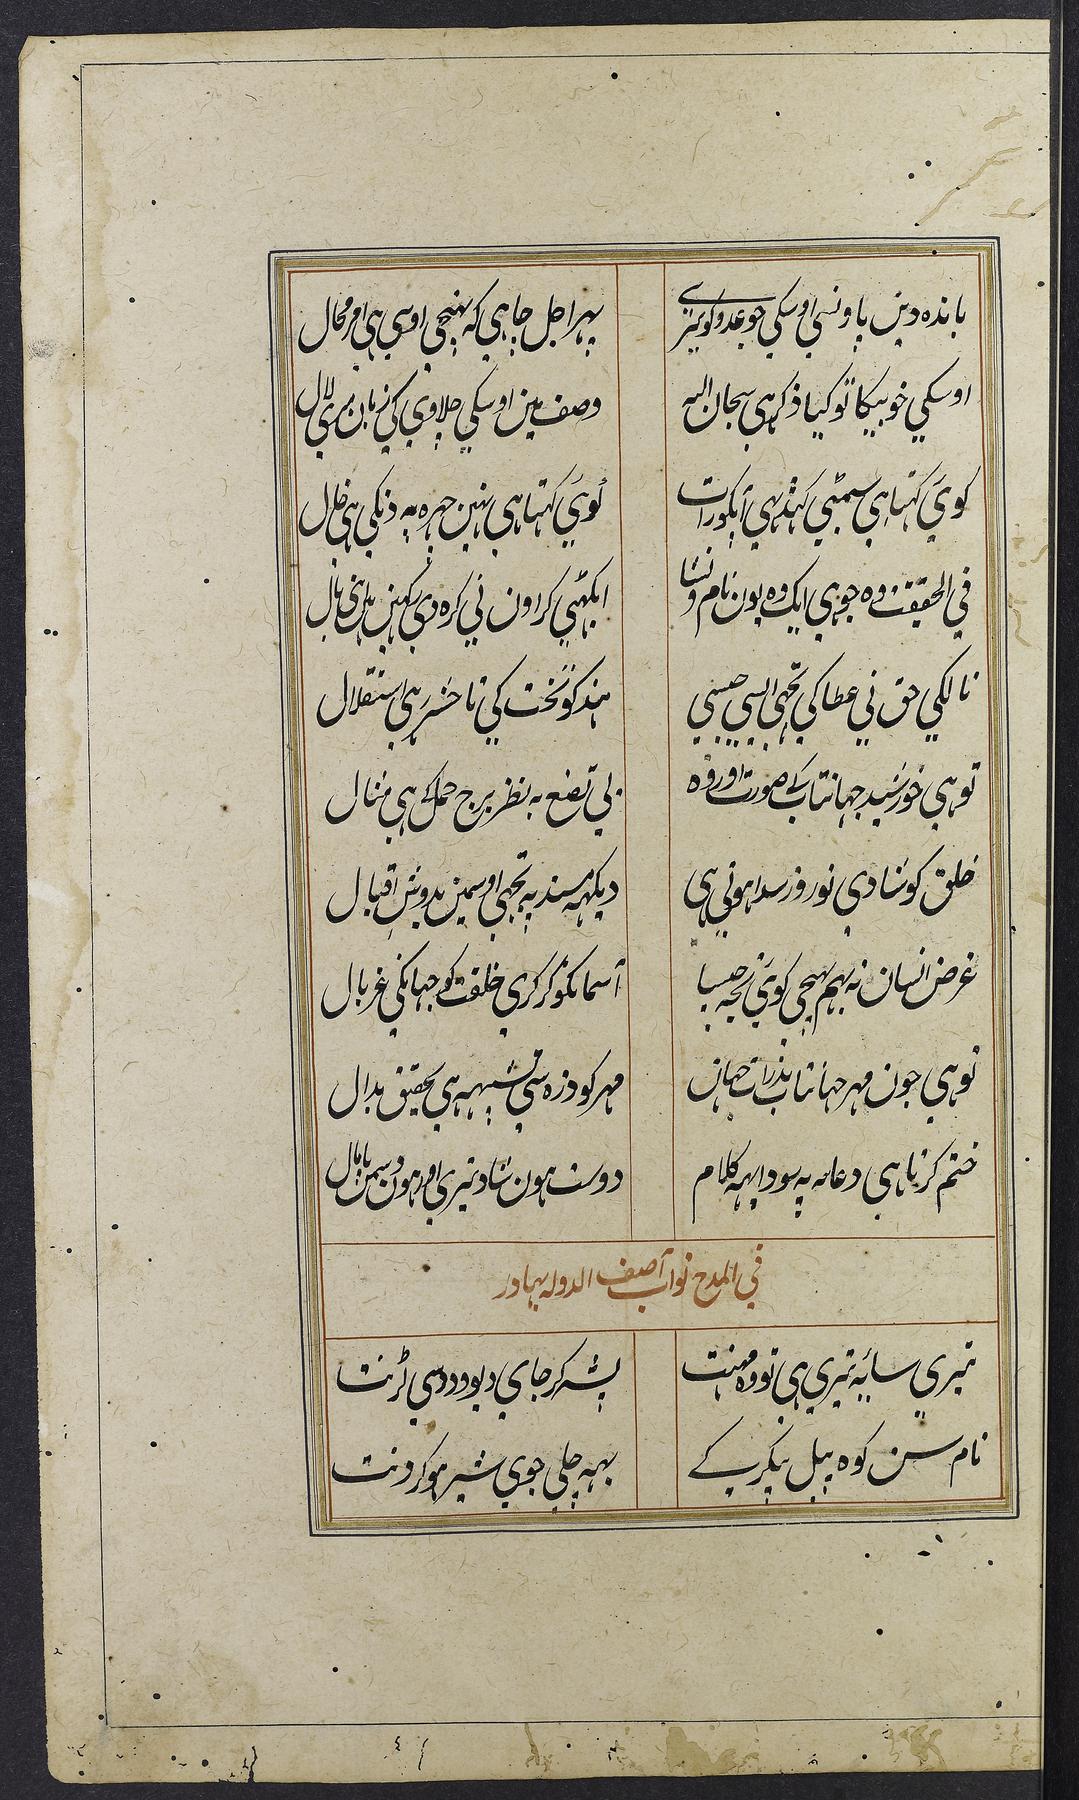 باندہ دین پاونسی اوسکی جو عدو کو تیری
پہر اجل چاہی کہ پہنچی اوسی ہی امر محال
اوسکی خوبیکا تو کیا ذکر ہی سبحان اللہ
وصف مین اوسکی چلاوی کی زبان میری لال
کویٔ کہتا ہی سمٹی
کویٔ کہتا ہی نہین چہرہ پہ ہی خال
فی الحقیقت وہ جو ہی ایک وہ یون نام و نشا
کر اون نی کرہ دی
نالکی حق نی عطا کی تجہی ایسی جیسی
ہند کو تخت کی تا حشر رہی استقلال
تو ہی خورشید جہانتاب کے صورت اور وہ
بی تصنع بہ نظر برج حمل کے ہی مثال
خلق کو شادی نوروز سدا ہوتی ہی
دیکہہ مسند پہ تجہی اوسمین بدوش اقبال
غرض انسان نہ بہم پہنچی کویٔ تجہ جیسا
آسمانکو گر کری خلقت کو جہانکی غربال
تو ہی جون مہر جہانتاب بذرات جہان
مہر کو ذرہ سی تشبیہہ ہی تحقیق بدال
ختم کرتا ہی دعائیہ پہ سودا یہہ کلام
دوست ہون شاد تیری اور ہون دشمن پامال
فی المدح نواب آصف الدولہ بہادر
تیری سایہ تیری ہی تو وہ مہنت
پشہ کر جای دیو و دد سی لڑنت
نام سن کوہ پیل پیکر کے
بہہ چلی جوی شیر ہو کر دنت